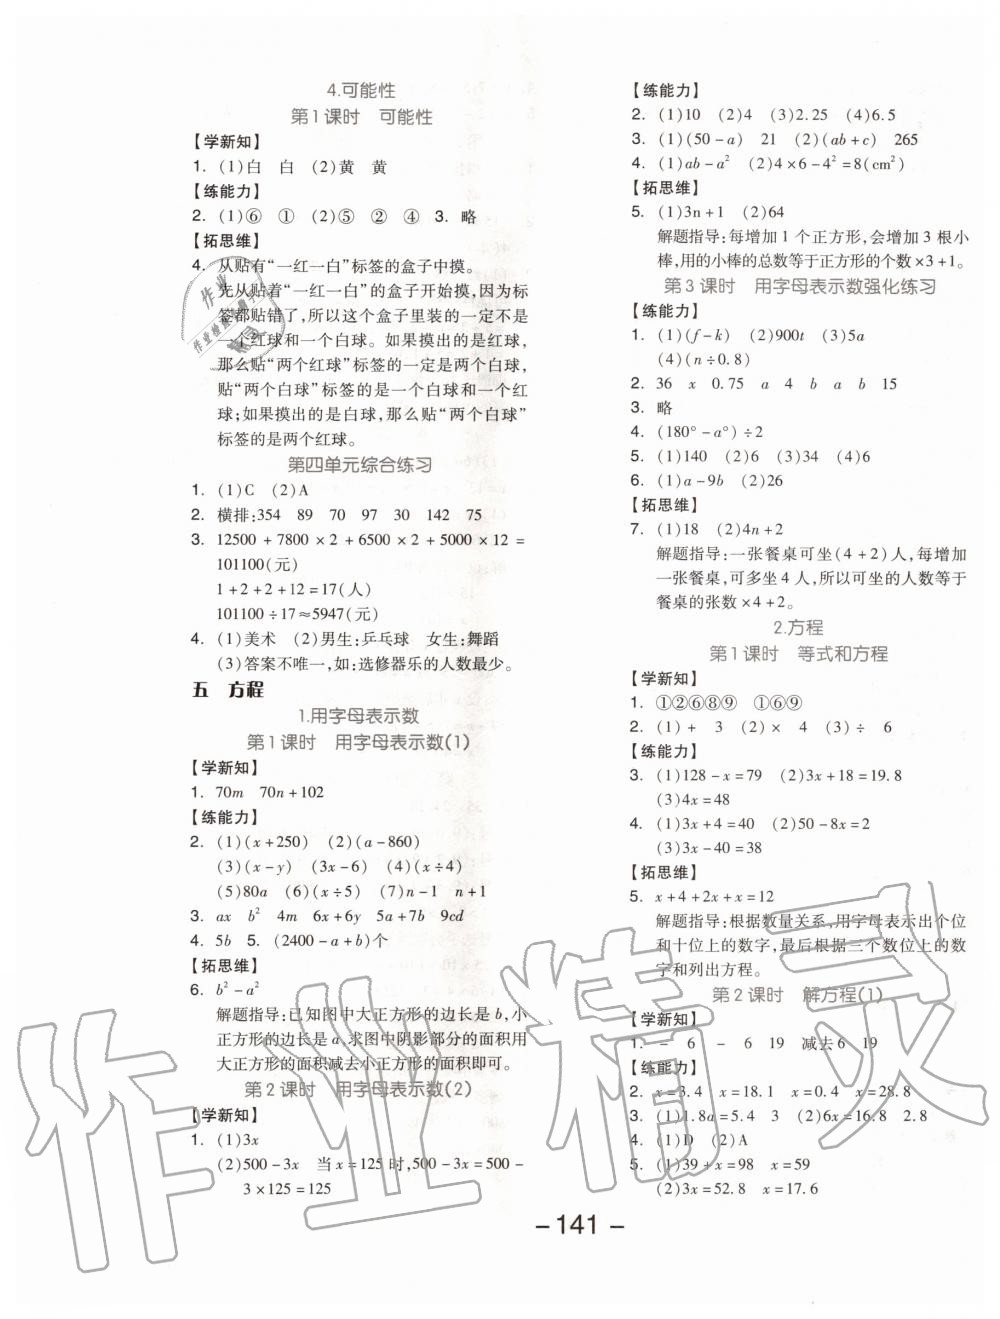 4.可能性
第1课时　可能性
【学新知】
1. (1)白　白　(2)黄　黄
【练能力】
2. (1)⑥　①　(2)⑤　②　④　3. 略
【拓思维】
4. 从贴有“一红一白”标签的盒子中摸。
先从贴着“一红一白”的盒子开始摸,因为标
签都贴错了,所以这个盒子里装的一定不是
一个红球和一个白球。如果摸出的是红球,
那么贴“两个红球”标签的一定是两个白球,
贴“两个白球”标签的是一个白球和一个红
球;如果摸出的是白球,那么贴“两个白球”
标签的是两个红球。
第四单元综合练习
1. (1)C　(2)A
2. 横排:354　89　70　97　30　142　75
3. 12500+7800×2+6500×2+5000×12=
101100(元)
1+2+2+12=17(人)
101100÷17≈5947(元)
4. (1)美术　(2)男生:乒乓球　女生:舞蹈
(3)答案不唯一,如:选修器乐的人数最少。
五　方程
1.用字母表示数
第1课时　用字母表示数(1)
【学新知】
1. 70m　70n+102
【练能力】
2. (1)(x+250)　(2)(a-860)
(3)(x-y)　(3x-6)　(4)(x÷4)
(5)80a　(6)(x÷5)　(7)n-1　n+1
3. ax　b²　4m　6x+6y　5a+7b　9cd
4. 5b　5. (2400-a+b)个
【拓思维】
6. b²-a²
解题指导:已知图中大正方形的边长是b,小
正方形的边长是a,求图中阴影部分的面积用
大正方形的面积减去小正方形的面积即可。
第2课时　用字母表示数(2)
【学新知】
1. (1)3x
(2)500-3x　当x=125时,500-3x=500-
3×125=125
【练能力】
2. (1)10　(2)4　(3)2.25　(4)6.5
3. (1)(50-a)　21　(2)(ab+c)　265
4. (1)ab-a²　(2)4×6-4²=8(cm²)
【拓思维】
5. (1)3n+1　(2)64
解题指导:每增加1个正方形,会增加3根小
棒,用的小棒的总数等于正方形的个数×3+1。
第3课时　用字母表示数强化练习
【练能力】
1. (1)(f-k)　(2)900t　(3)5a
(4)(n÷0.8)
2. 36　x　0.75　a　4　b　a　b　15
3. 略
4. (180°-a°)÷2
5. (1)140　(2)6　(3)34　(4)6
6. (1)a-9b　(2)26
【拓思维】
7. (1)18　(2)4n+2
解题指导:一张餐桌可坐(4+2)人,每增加
一张餐桌,可多坐4人,所以可坐的人数等于
餐桌的张数×4+2。
2.方程
第1课时　等式和方程
【学新知】
1. ①②⑥⑧⑨　①⑥⑨
2. (1)+　3　(2)×　4　(3)÷　6
【练能力】
3. (1)128-x=79　(2)3x+18=19.8
(3)4x=48
4. (1)3x+4=40　(2)50-8x=2
(3)3x-40=38
【拓思维】
5. x+4+2x+x=12
解题指导:根据数量关系,用字母表示出个位
和十位上的数字,最后根据三个数位上的数
字和列出方程。
第2课时　解方程(1)
【学新知】
1. -　6　-　6　19　减去6　19
【练能力】
2. x=3.4　x=18.1　x=0.4　x=28.8
3. (1)1.8a=5.4　3　(2)6x=16.8　2.8
4. (1)D　(2)A
5. (1)39+x=98　x=59
(2)3x=52.8　x=17.6
-141-
作业精灵